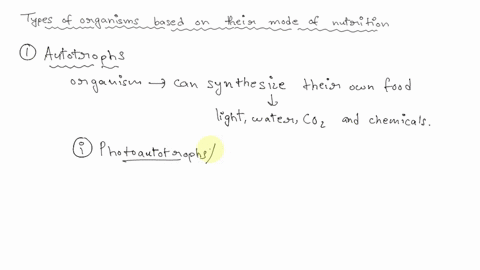 Types of organisms based on their mode of nutrition
① Autotrophs
organism → can synthesize their own food
↓
light, water, CO₂ and chemicals.
ⓘ Photoautotrophs/